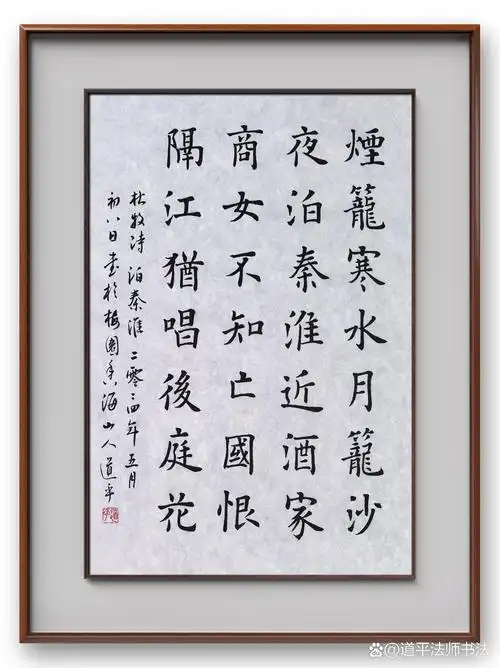 煙籠寒水月籠沙
夜泊秦淮近酒家
商女不知亡國恨
隔江猶唱後庭花
杜牧诗 泊秦淮 二零二四年五月
初八日 书於梅園香海山人道平
@道平法师书法